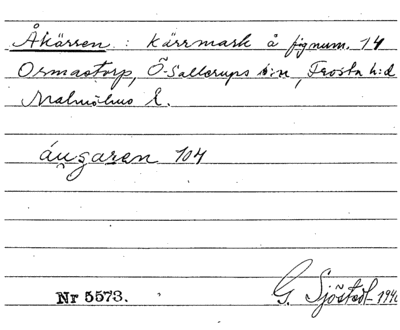 Åkärren : Kärrmark å fignum. 14
Ormastorp, Ö-Sallerups s:n, Frosta h:d
Malmöhus L.
áugaren 104
Nr 5573.
G. Sjöstedt 1940